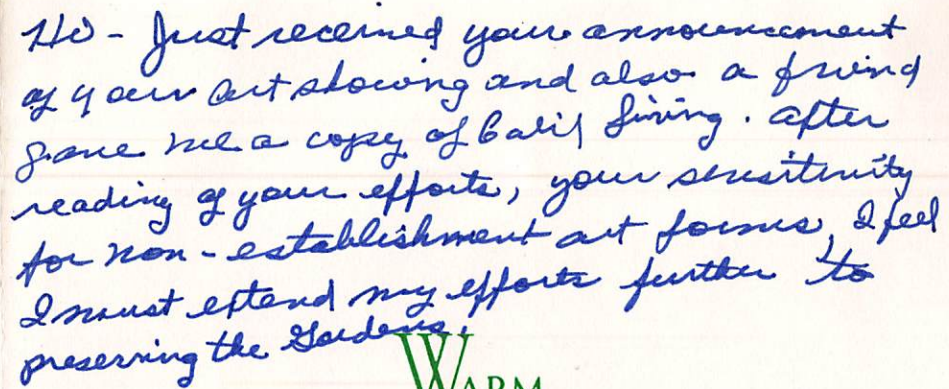 Hi - Just received your announcement
of your art showing and also a friend
gave me a copy of Calif Living. After
reading of your efforts, your sensitivity
for non-establishment art forms, I feel
I must extend my efforts further to
preserving the Gardens.
WARM